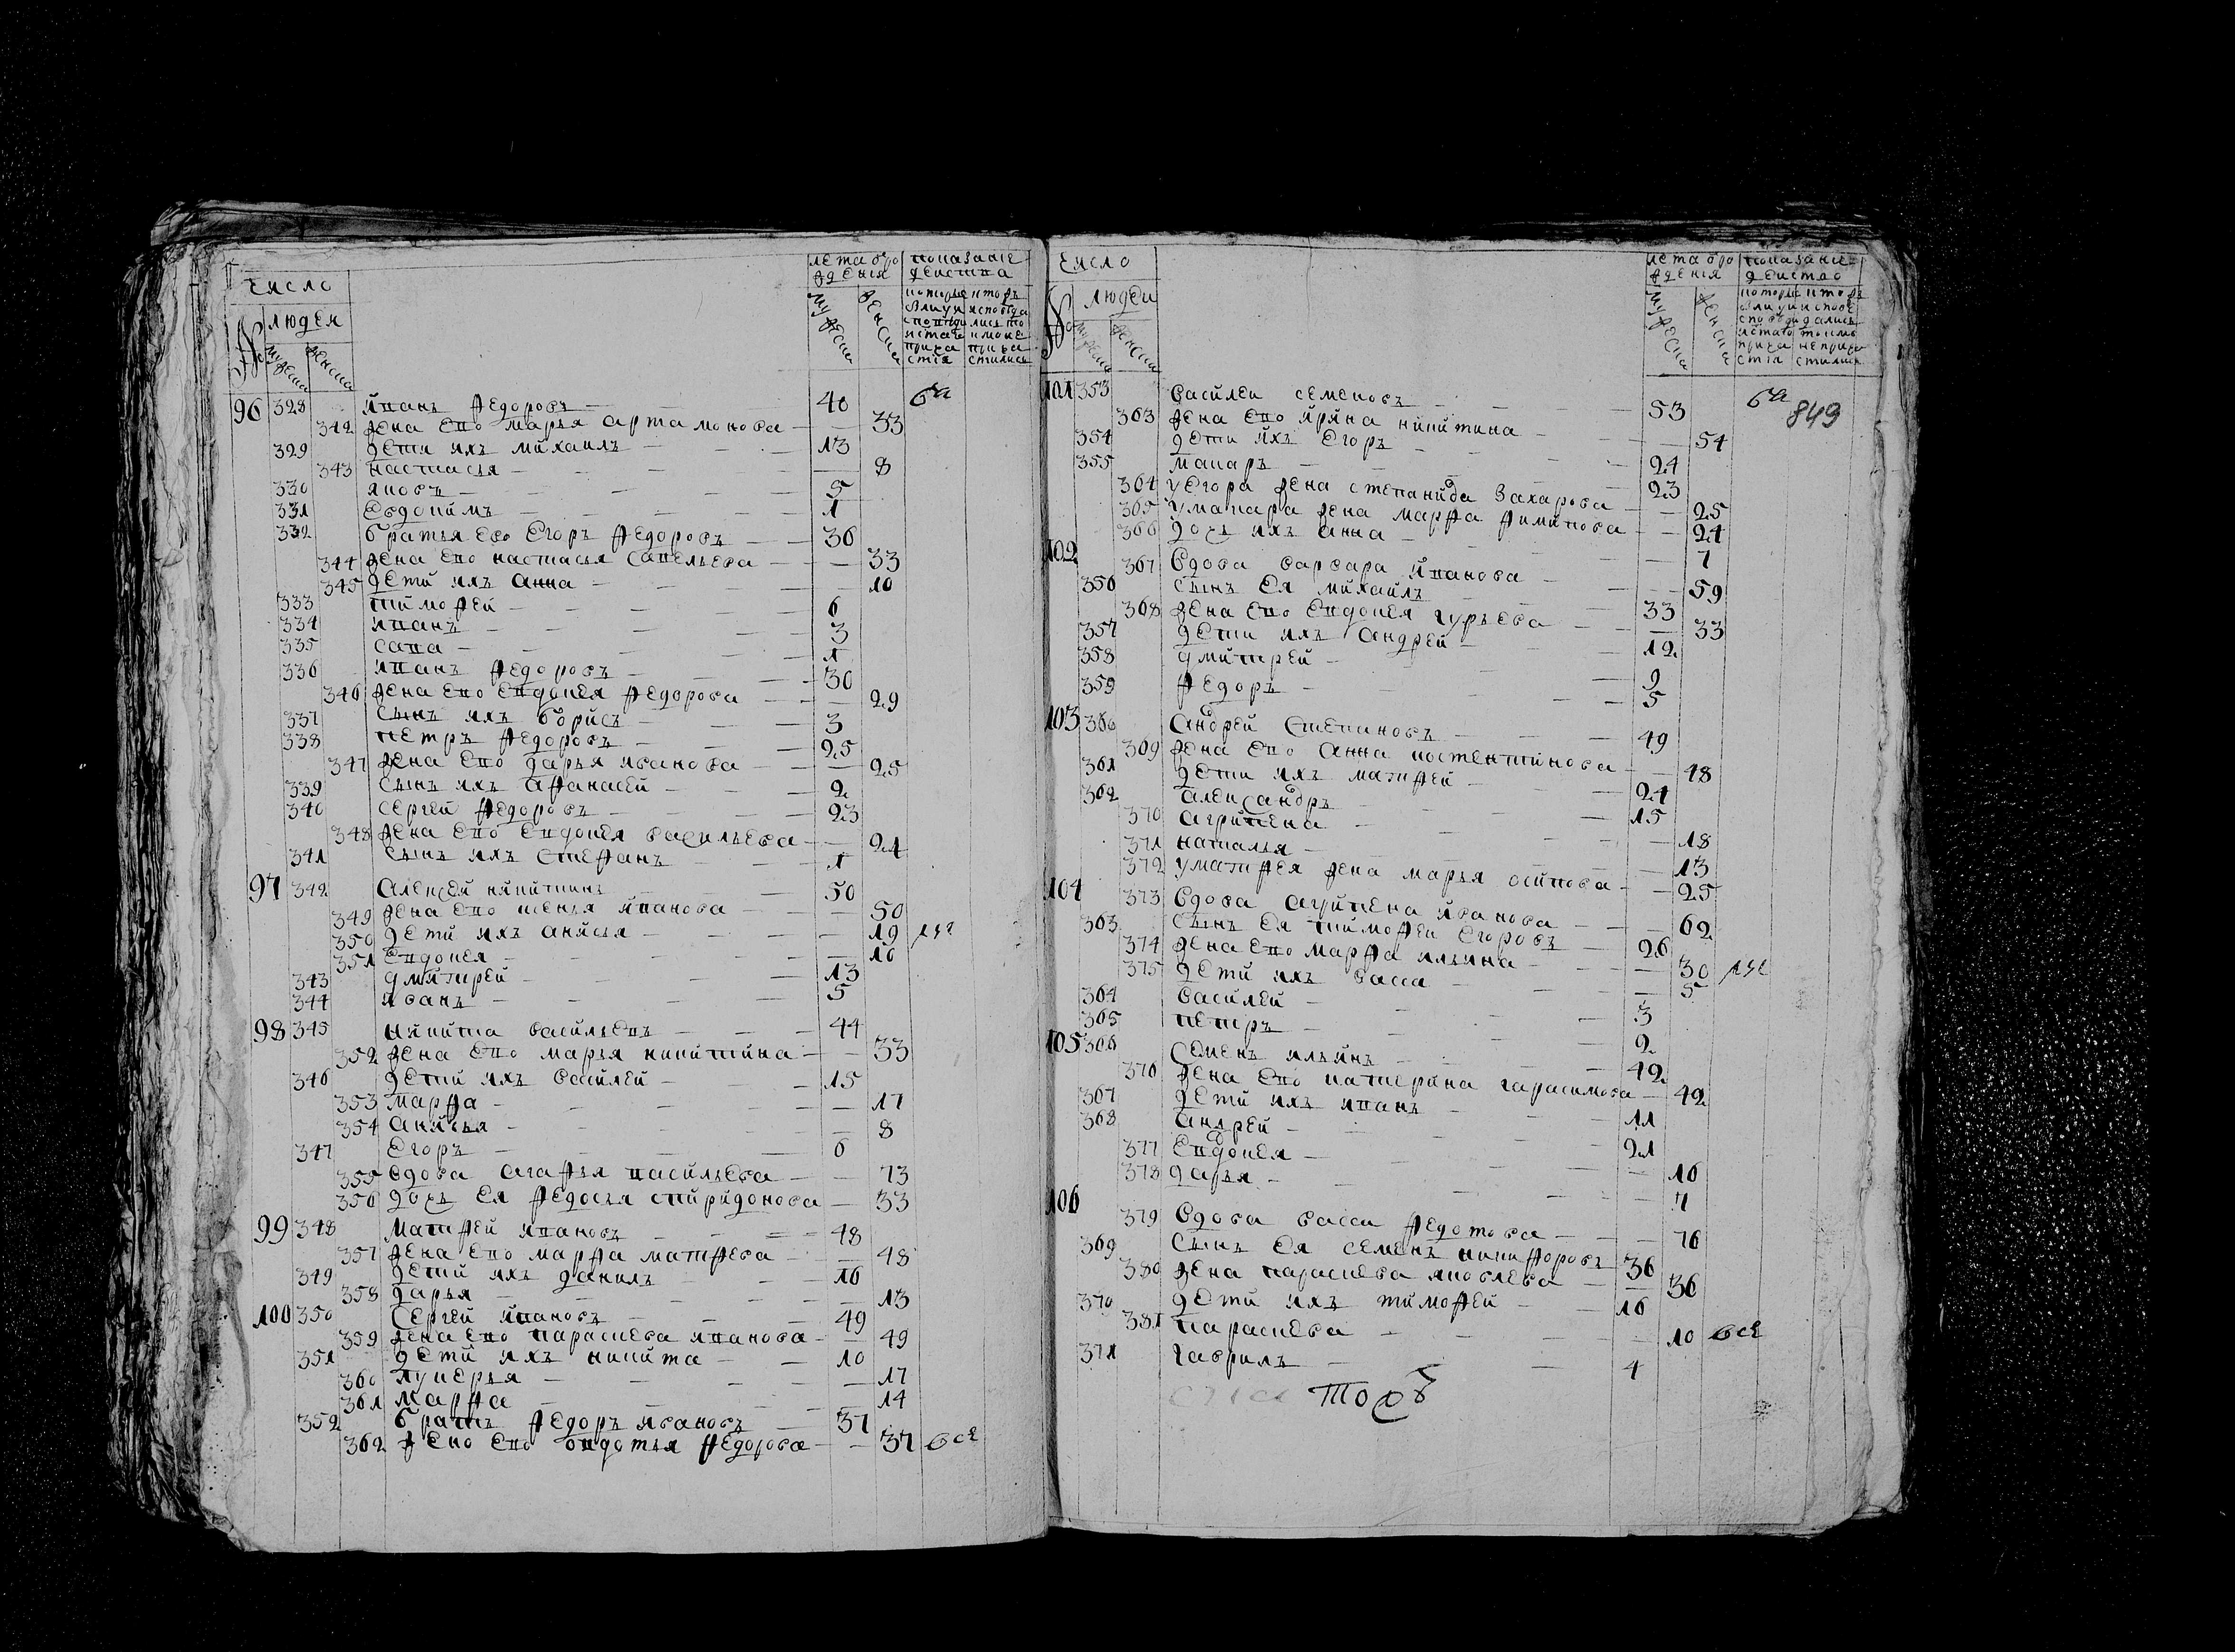 число
лета бро
жденiя
показанiе
действа
№
людей
мужеска
женска
мужеска
женска
96 328 иванъ федоровъ 40
342 жена ево марья артамонова 33
329 дети ихъ михаилъ 13
343 настасья 8
330 яковъ 5
331 евдокимъ 1
332 братья его егоръ федоровъ 36
344 жена ево настасья савельева 33
345 дети ихъ анна 10
333 тимофей 6
334 иванъ 3
335 сава 1
336 иванъ федоровъ 30
346 жена ево евдокея федорова 29
337 сынъ ихъ борисъ 3
338 петръ федоровъ 25
347 жена ево дарья иванова 25
339 сынъ ихъ афанасей 2
340 сергей федоровъ 23
348 жена ево евдокея васильева 21
341 сынъ ихъ стефанъ 1
97 342 алексей никитинъ 50
349 жена ево иванова 50
350 дети ихъ анисья 19
351 евдокея 10
343 дмитрей 13
344 иванъ 5
98 345 никита васильевъ 44
352 жена ево марья никитина 33
346 дети ихъ василей 15
353 марфа 17
354 анисья 8
347 егоръ 6
355 вдова агафья васильева 73
356 дочь ея федосья спиридонова 33
99 348 матфей ивановъ 48
357 жена ево марфа матфева 48
349 дети ихъ данилъ 16
358 дарья 13
100 350 сергей ивановъ 49
359 жена ево параскева иванова 49
351 дети ихъ никита 10
360 лукерья 17
361 марфа 14
352 братъ федоръ ивановъ 37
362 жено ево овдотья федорова 37 все
число
лета бро
жденiя
показанiе
действо
№
люди
мужеска
женска
мужеска
женска
849
101 353 василей семеновъ 53
363 жена ево ирина никитина 54
354 дети ихъ егоръ 24
355 макаръ 23
364 у егора жена степанида захарова 25
365 у макара жена марфа фимипова 24
366 дочь ихъ анна 7
102 367 вдова варвара иванова 59
356 сынъ ея михаилъ 33
368 жена ево евдокея гурьева 33
357 дети ихъ андрей 12
358 дмитрей 9
359 федоръ 5
103 360 андрей степановъ 49
369 жена ево анна костентинова 48
361 дети ихъ матфей 24
362 александръ 15
370 агрипена 18
371 наталья 13
372 у матфея жена марья осипова 25
104 373 вдова агрипена иванова 62
363 сынъ ея тимофей егоровъ 26
374 жена ево марфа ильина 30
375 дети ихъ васса 5
364 василей 3
365 петръ 2
105 366 семенъ ильинъ 42
376 жена ево катерина гарасимова 42
367 дети ихъ иванъ 11
368 андрей 21
377 евдокея 10
378 дарья 7
106 379 вдова васса федотова 76
369 сынъ ея семенъ никифоровъ 36
380 жена параскева яковлева 36
370 дети ихъ тимофей 16
381 параскева 10 все
371 гаврилъ 4